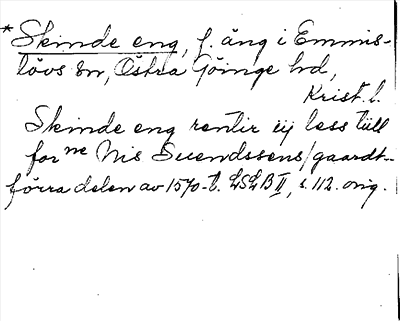 *Skinde eng, f. äng i Emmis-
lövs sn, Östra Göinge hd,
Krist. l.
Skinde eng rentir iij less till
for ne Nis Suendssens gaardt
förra delen av 1570-t. LSLB II, s. 112. orig.